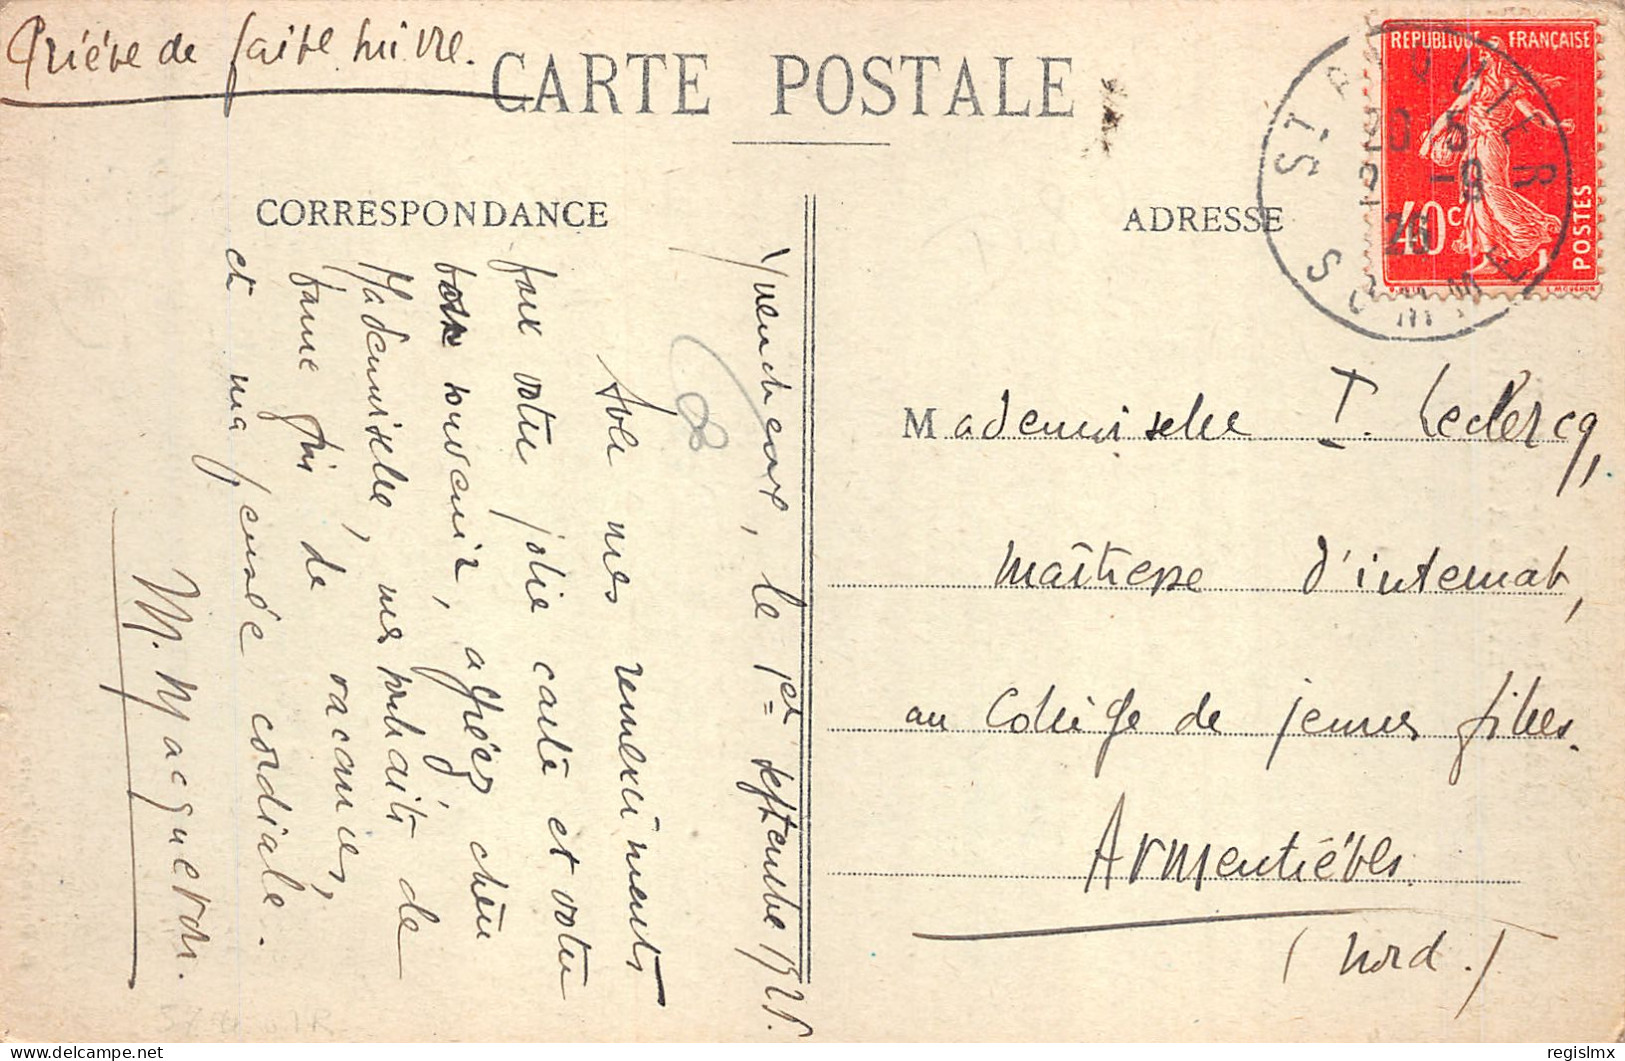 Prière de faire suivre.
CARTE POSTALE
CORRESPONDANCE
ADRESSE
REPUBLIQUE FRANÇAISE
40c
POSTES
ST RIQUIER
20 5
1 -9
26
SOMME
Yvencheux, le 1er septembre 1925.
Avec mes remerciements
pour votre jolie carte et votre
bon souvenir, agréez chère
Mademoiselle, mes souhaits de
bonne fin de vacances,
et ma pensée cordiale.
M. Macqueron.
Mademoiselle Y. Leclercq,
Maîtresse d'internat,
au Collège de jeunes filles.
Armentières
(Nord.)
regislmx
delcampe.net